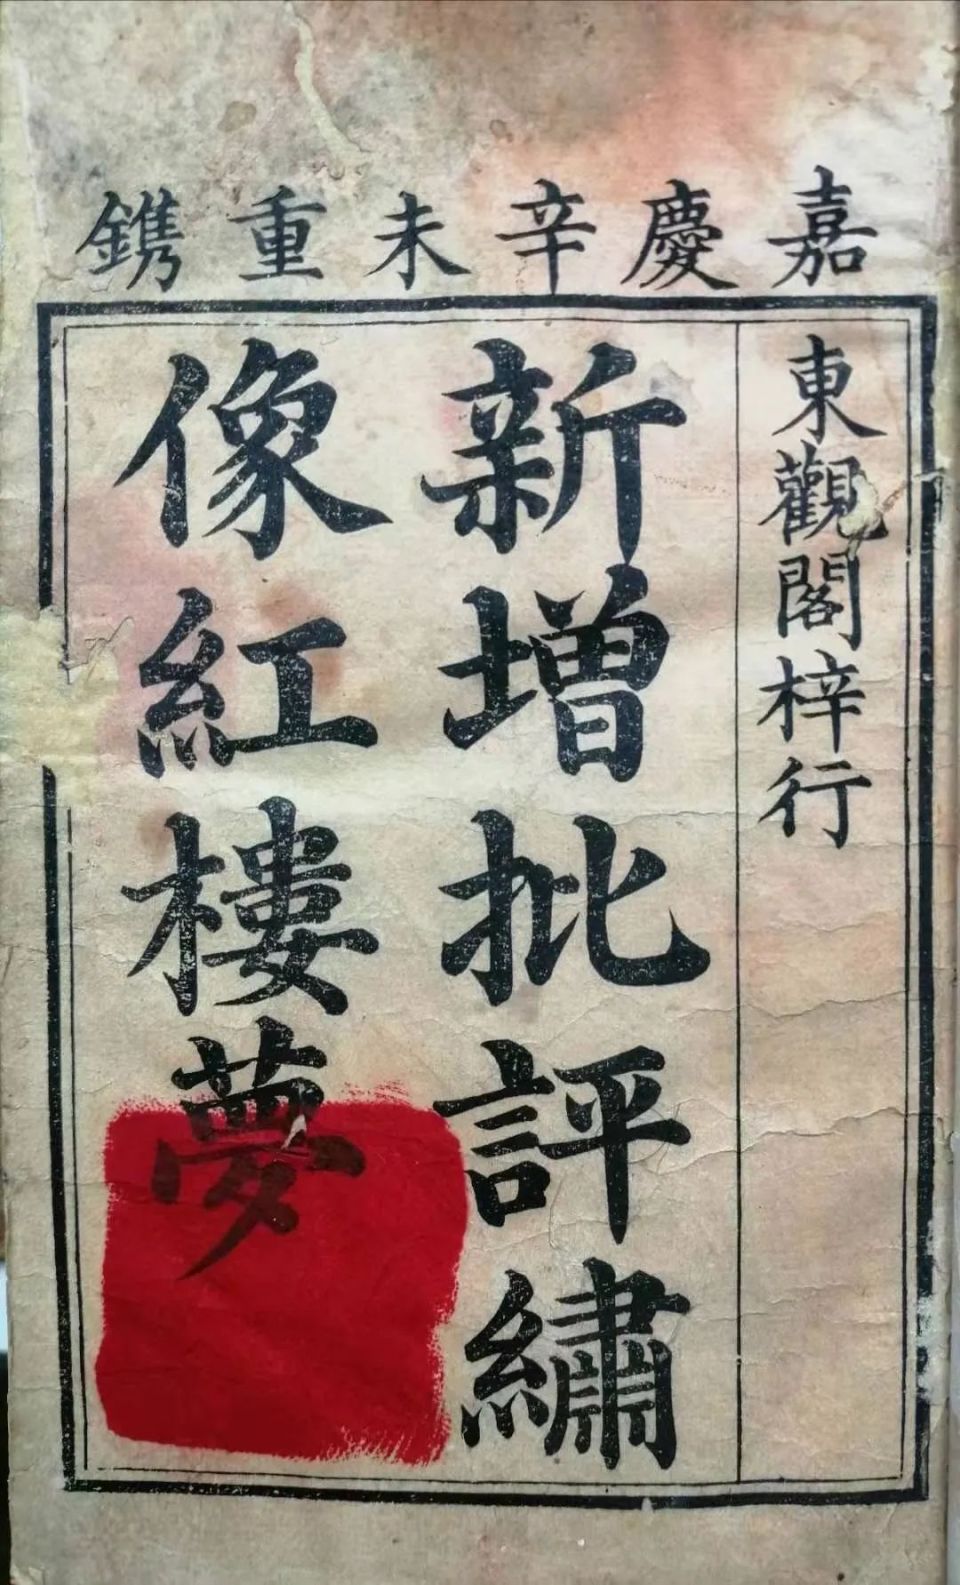 嘉慶辛未重鐫
東觀閣梓行
新增批評繡
像紅樓夢